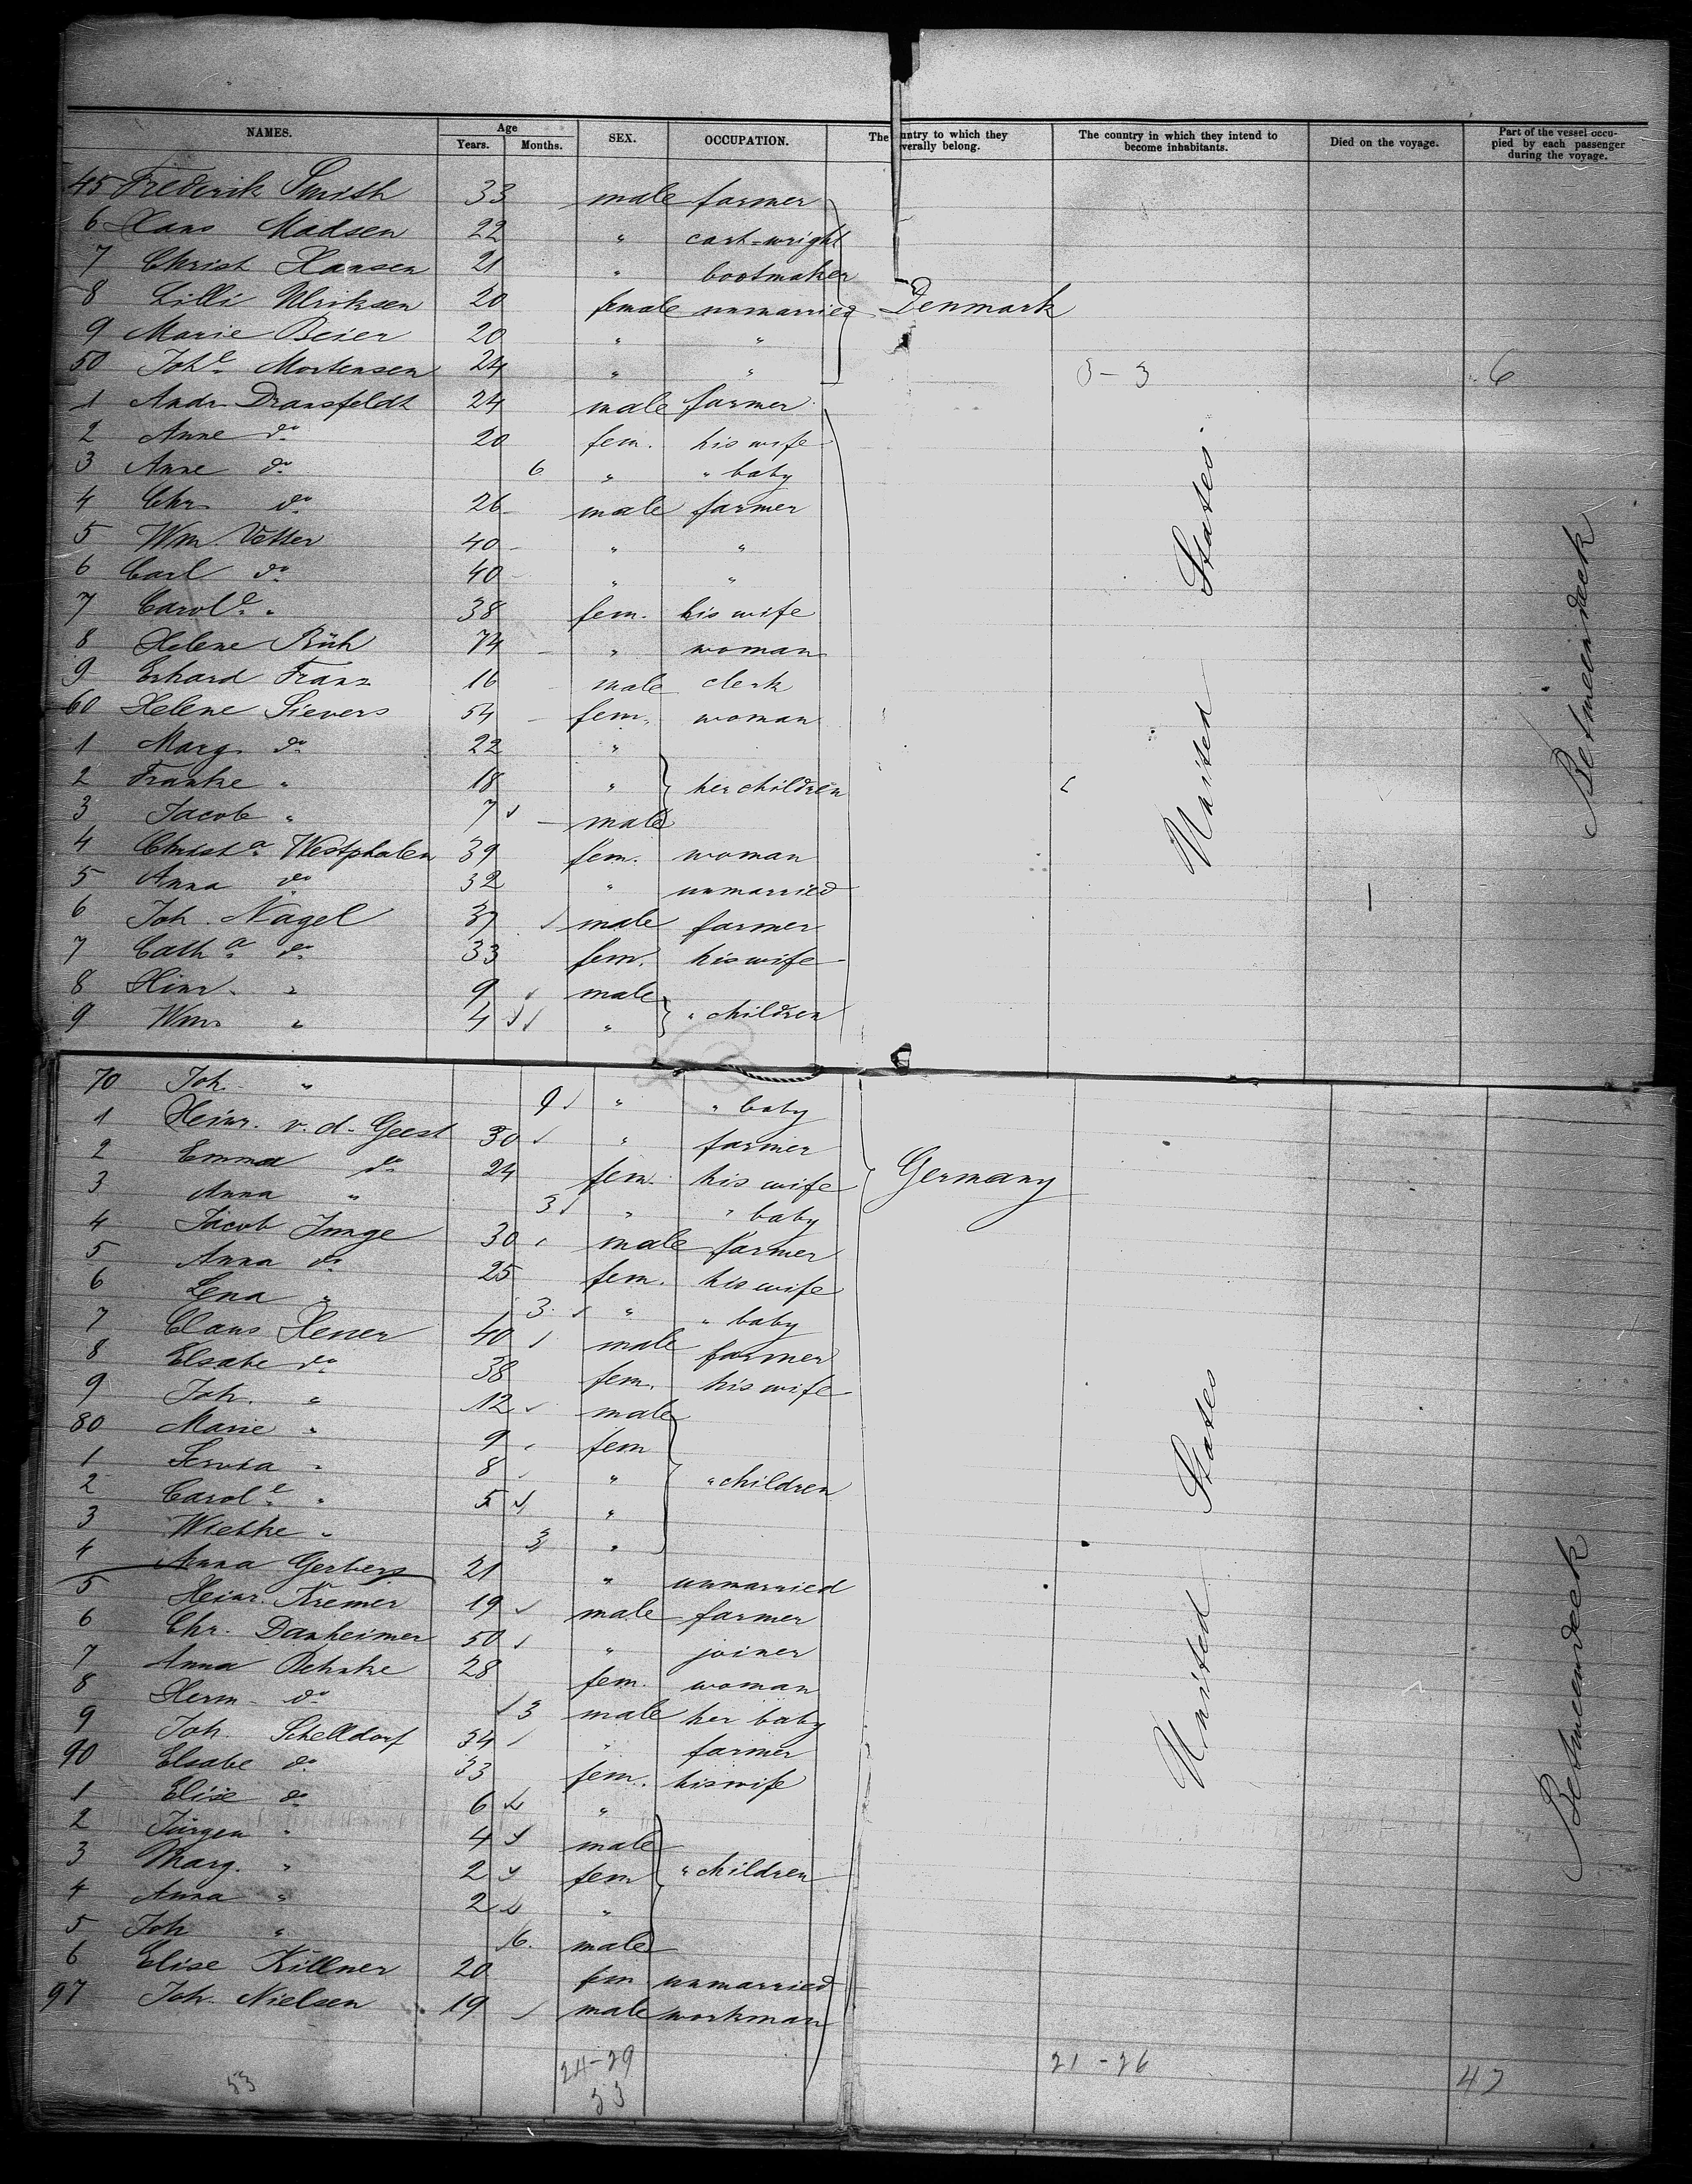 NAMES. Age SEX. OCCUPATION. The country to which they severally belong. The country in which they intend to become inhabitants. Died on the voyage. Part of the vessel occupied by each passenger during the voyage.
Years. Months.
45 Frederik Smith 33 male farmer
6 Hans Madsen 22 " cart-wright
7 Christ Hansen 21 " bootmaker
8 Lilli Ulriksen 20 female unmarried Denmark
9 Marie Beier 20 " "
50 Johe Mortensen 24 " " 3-3 6
1 Andr. Dransfeldt 24 male farmer
2 Anne do 20 fem. his wife
3 Anne do 6 " " baby
4 Chr. do 26 male farmer
5 Wm Vetter 40 " "
6 Carl do 40 " "
7 Carole " 38 fem. his wife
8 Helene Rüh 74 " woman
9 Erhard Franz 16 male clerk
60 Helene Sievers 54 fem. woman
1 Marg. do 22 "
2 Franke " 18 " her children
3 Jacob " 7 male
4 Christa Westphalen 39 fem. woman
5 Anna do 32 " unmarried
6 Joh. Nagel 37 male farmer
7 Catha do 33 fem. his wife
8 Hinr. " 9 male
9 Wm " 4 " " children
United States
Betweendeck
70 Joh. " 9 " " baby
1 Heinr. v. d. Geest 30 " farmer
2 Emma do 24 fem. his wife Germany
3 Anna " 3 " " baby
4 Jacob Junge 30 male farmer
5 Anna do 25 fem. his wife
6 Lena " 3 " " baby
7 Claus 40 male farmer
8 Elsabe do 38 fem. his wife
9 Joh. " 12 male
80 Marie " 9 fem
1 " 8 " " children
2 Carole " 5 "
3 Wiebke " 3 "
4 Anna Gerbers 21 " unmarried
5 Heinr. Kremer 19 male farmer
6 Chr. Danheimer 50 " joiner
7 Anna Behnke 28 fem. woman
8 Herm. do 3 male her baby
9 Joh. Schelldorf 34 " farmer
90 Elsabe do 33 fem. his wife
1 Elise do 6 "
2 Jürgen " 4 male
3 Marg. " 2 fem " children
4 Anna " 2 "
5 Joh " 6. male
6 Elise Killner 20 fem unmarried
97 Joh. Nielsen 19 male workman
United States
Betweendeck
24-29 21-26 47
53 53